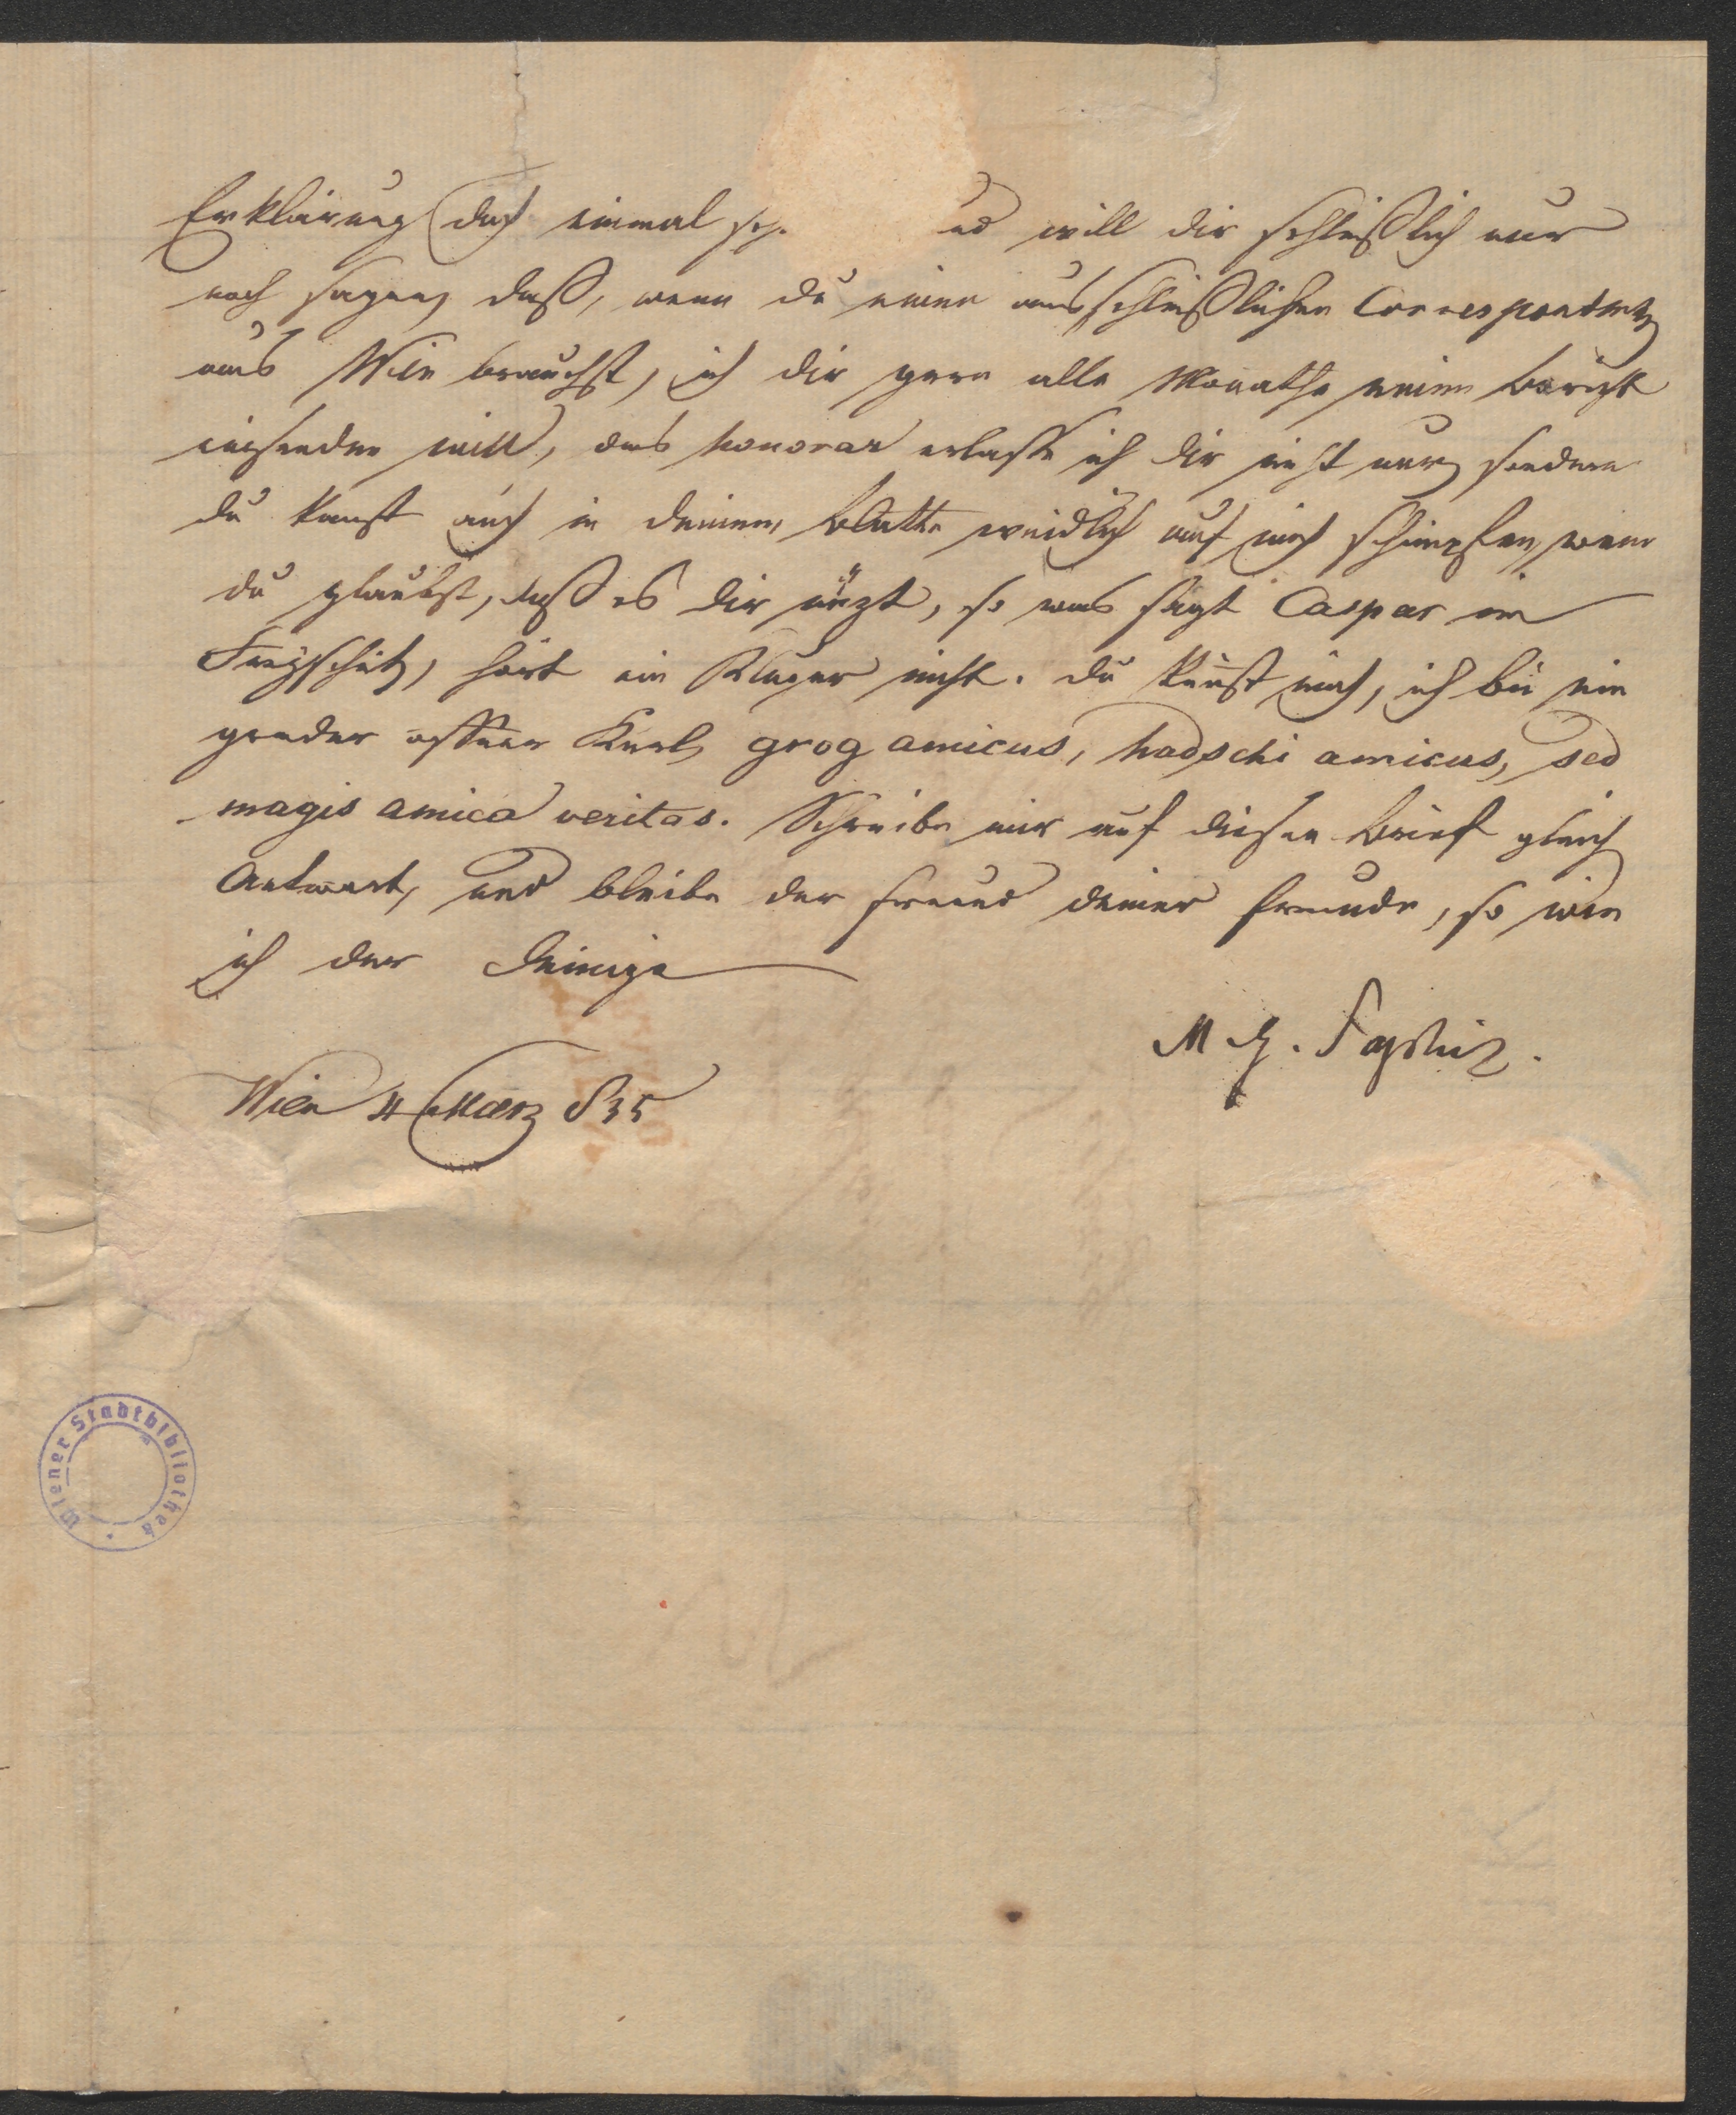 Erklärung doch einmal se will dir schließlich nur
noch sagen, daß, wenn du einen ausschließlichen Correspondenten
aus Wien brauchst, ich dir gern alle Monathe einen Bericht
einsenden will, das honorar erlasse ich dir nicht nur, sondern
du kanst auch in deinem Blatte weidlich auf mich schimpfen, wenn
du glaubst, daß es dir nüzt, so was sagt Caspar im
Freyschütz, hört ein Kluger nicht. du kenst mich, ich bin ein
grader offener Kerl, grog amicus, hadschi amicus, sed
magis amica veritas. Schreibe mir auf diesen Brief gleich
Antwort, und bleibe der Freund deiner Freunde, so wie
ich der deinige
M. G. Saphir.
Wien 4 März 835
Wiener Stadtbibliothek